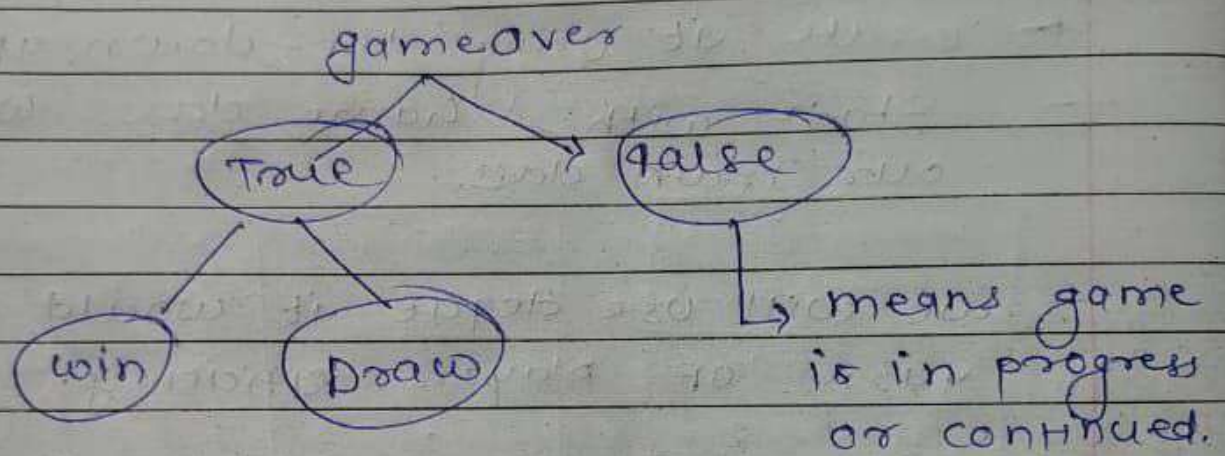 gameover
True
false
win
Draw
means game
is in progress
or continued.